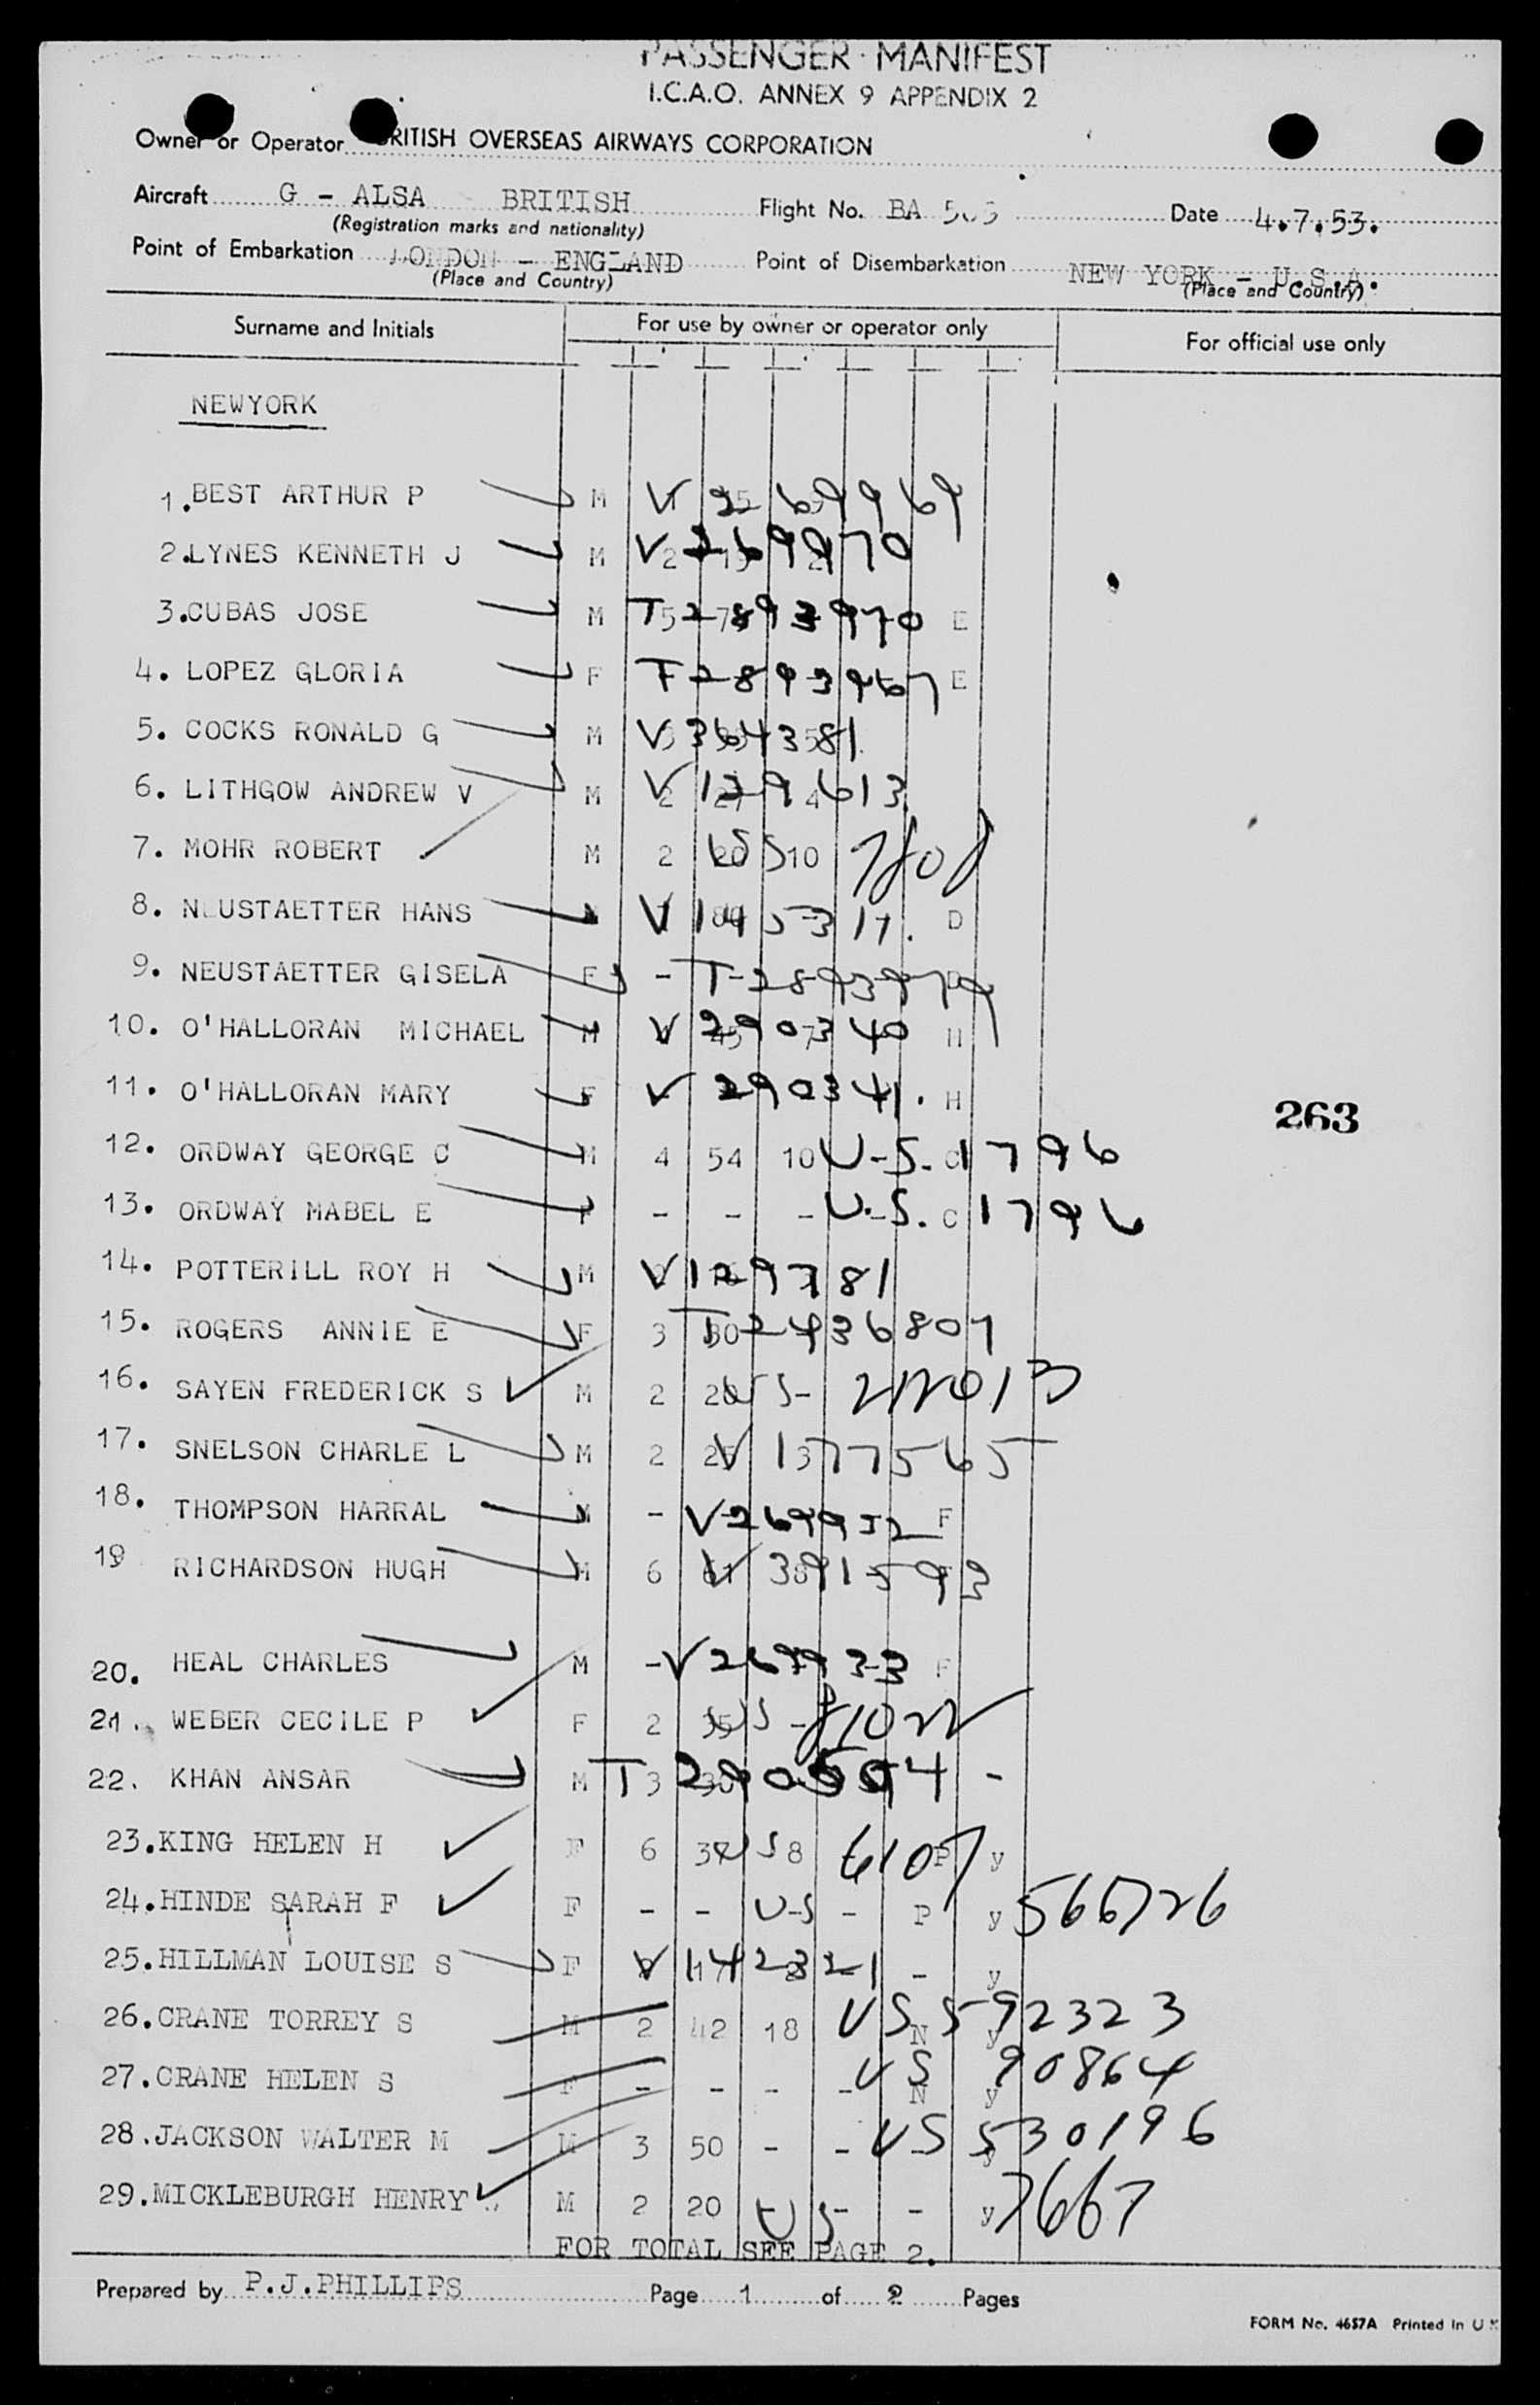 PASSENGER · MANIFEST
I.C.A.O. ANNEX 9 APPENDIX 2
Owner or Operator BRITISH OVERSEAS AIRWAYS CORPORATION
Aircraft G - ALSA BRITISH Flight No. BA Date 4.7.53.
(Registration marks and nationality)
Point of Embarkation LONDON - ENGLAND Point of Disembarkation NEW YORK - U.S.A.
(Place and Country) (Place and Country)
Surname and Initials For use by owner or operator only For official use only
NEWYORK
1. BEST ARTHUR P M V 269969
2. LYNES KENNETH J M V 269970
3. CUBAS JOSE M T 2893970 E
4. LOPEZ GLORIA F T 2893967 E
5. COCKS RONALD G M V 364381
6. LITHGOW ANDREW V M V 129613
7. MOHR ROBERT M 2 20 US 10
8. NEUSTAETTER HANS M V 145317. D
9. NEUSTAETTER GISELA F - T-2893979
10. O'HALLORAN MICHAEL M V 290340 H
11. O'HALLORAN MARY F V 290341. H
263
12. ORDWAY GEORGE C M 4 54 10 U-S. C 1796
13. ORDWAY MABEL E F - - - U.-S. C 1796
14. POTTERILL ROY H M V 129781
15. ROGERS ANNIE E F 3 30 T 2436807
16. SAYEN FREDERICK S M 2 20 US- 212013
17. SNELSON CHARLE L M 2 25 V 1377565
18. THOMPSON HARRAL M - V 269952 F
19 RICHARDSON HUGH M 6 61 V 391593
20. HEAL CHARLES M - V 269933 F
21. WEBER CECILE P F 2 35 US -
22. KHAN ANSAR M T 3 -
23. KING HELEN H F 6 37 US 8 6107 P y
24. HINDE SARAH F F - - US - P y 566726
25. HILLMAN LOUISE S F V 142321 - y
26. CRANE TORREY S M 2 42 18 US N y 592323
27. CRANE HELEN S F - - - - US N y 90864
28. JACKSON WALTER M M 3 50 - - - US y 530196
29. MICKLEBURGH HENRY M 2 20 US - - y 7667
FOR TOTAL SEE PAGE 2.
Prepared by P.J.PHILLIPS Page 1 of 2 Pages
FORM No. 4657A Printed in U K